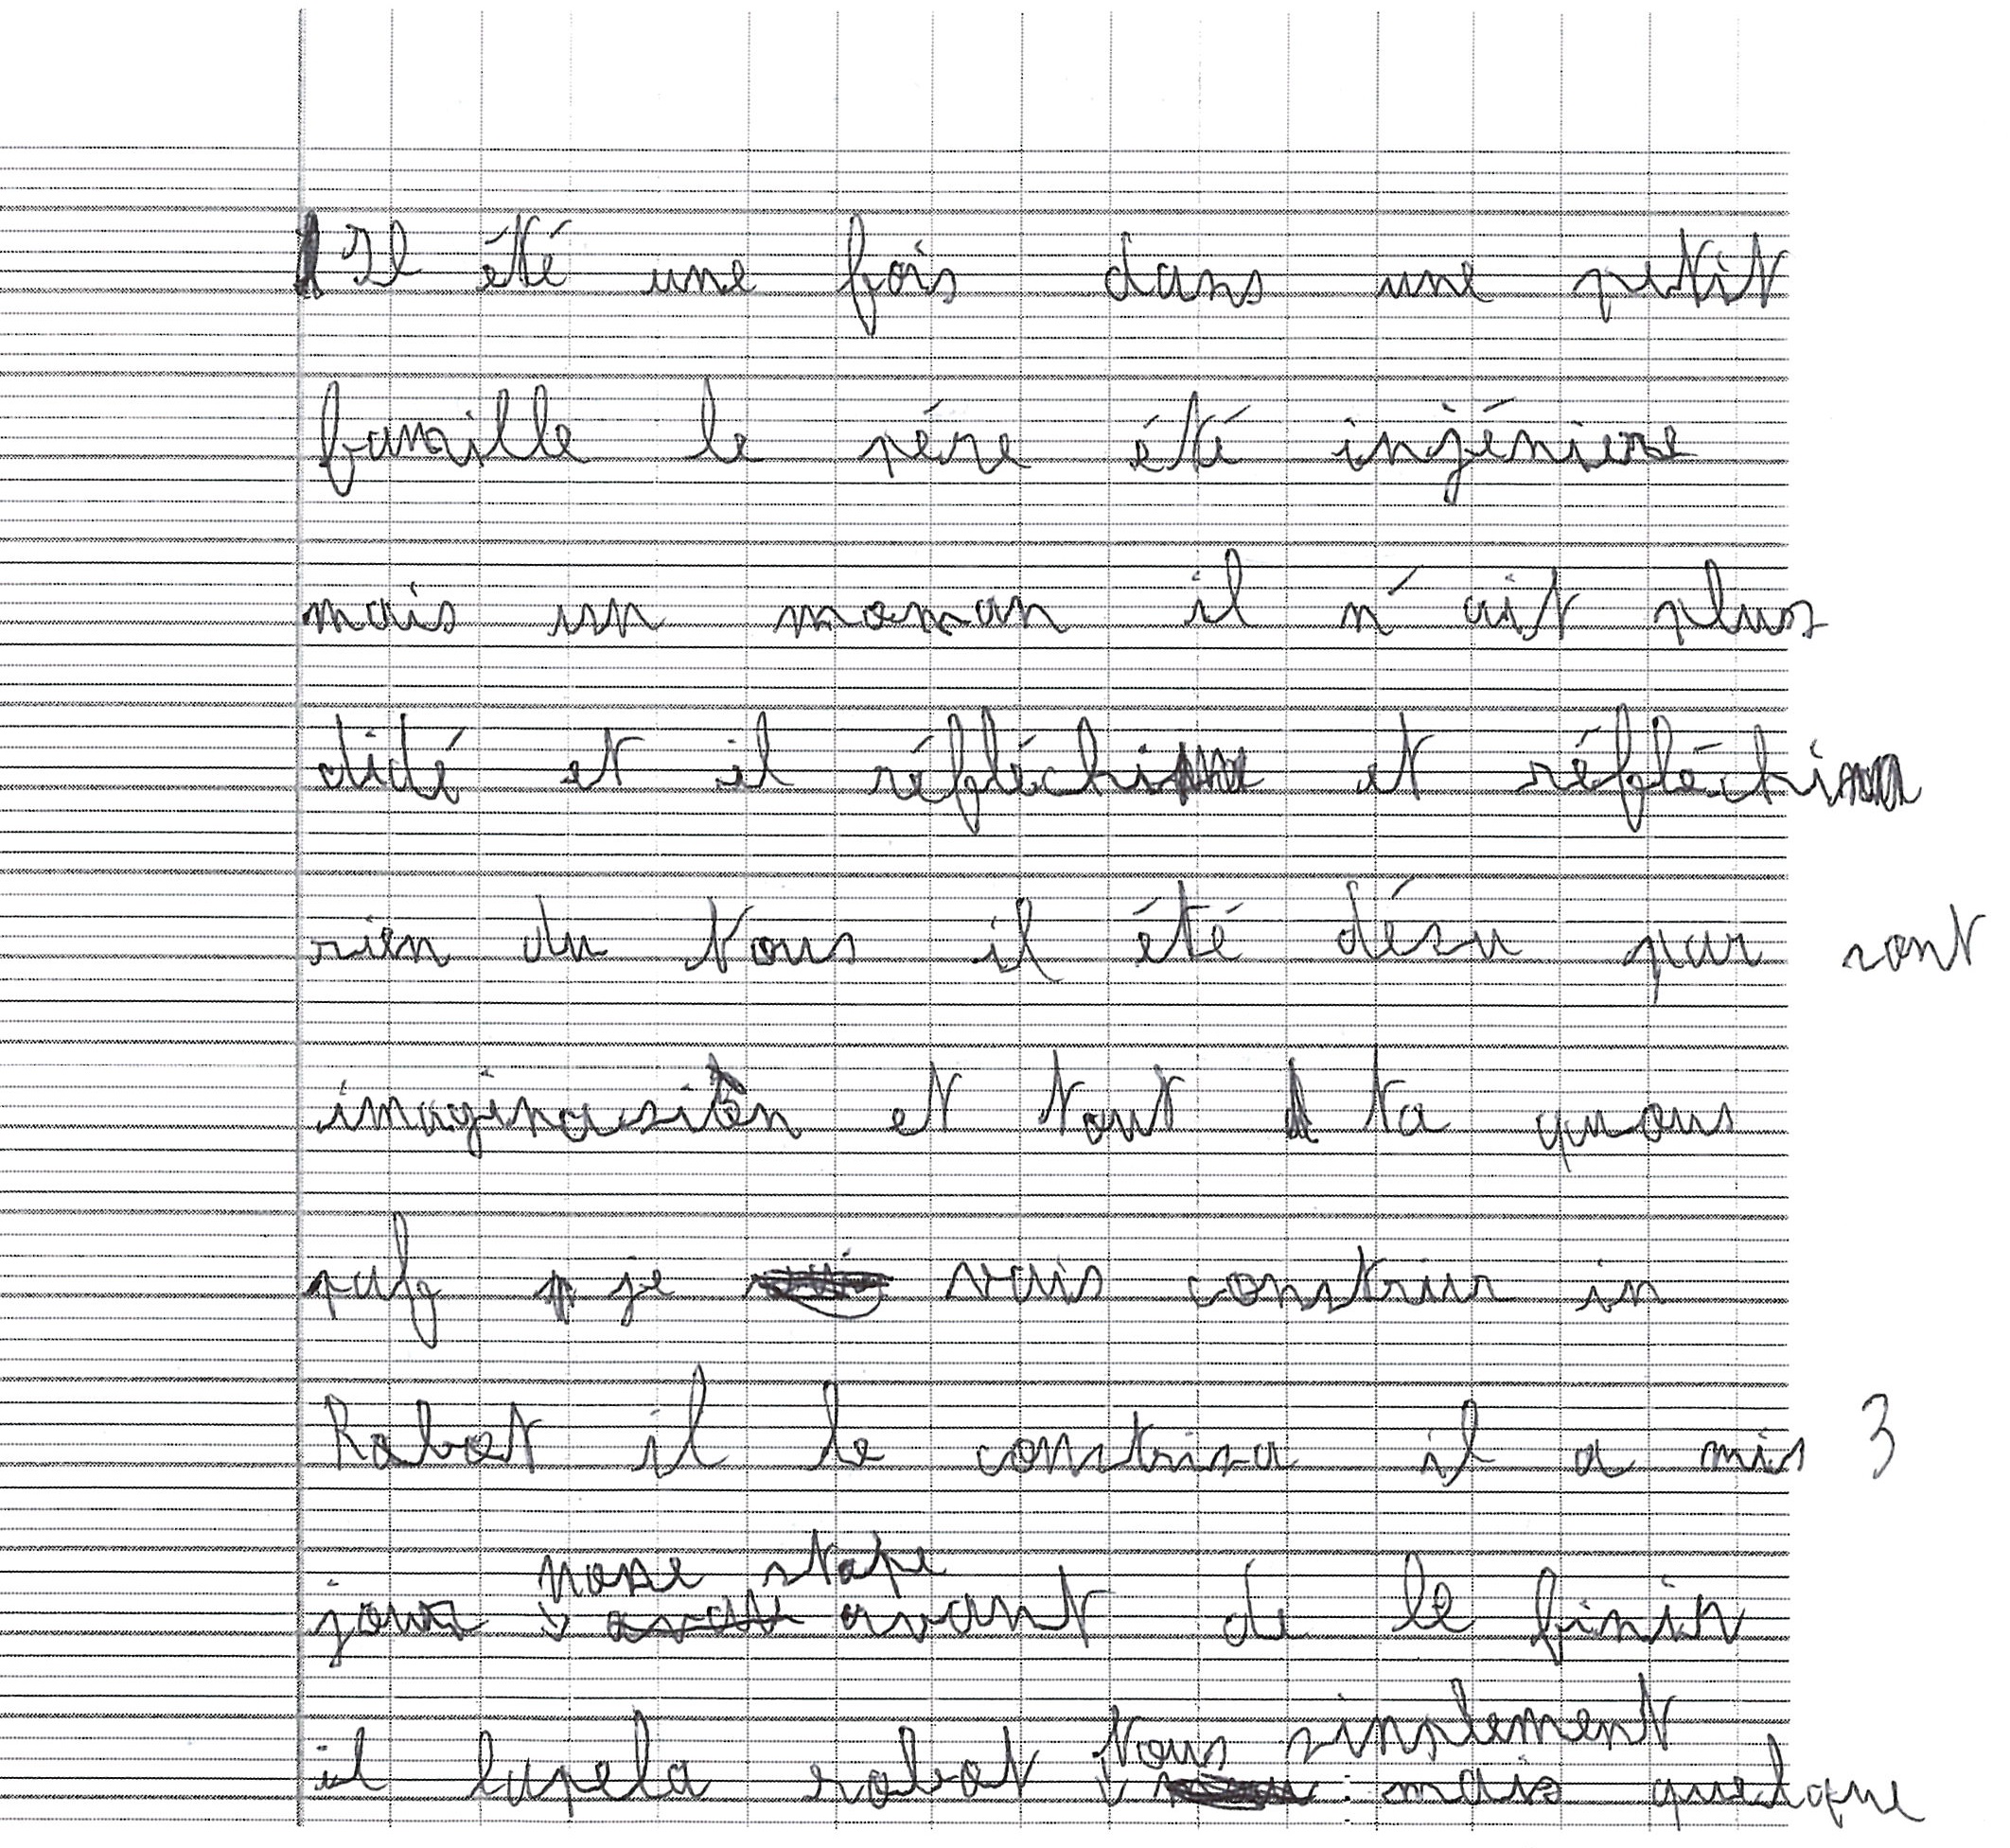 Il été une fois dans une petit
famille le pére été injéniere
mais un moman il n'ait plus
didé et il réfléchi et réfléchi
rien du tous il été désu par sont
imaginasiton et tout ta quous
pafg je vais construir in
Robot il le constriza il a mis 3
jour none stope avant de le finir
il lapela robot tous sinplement mais quelque